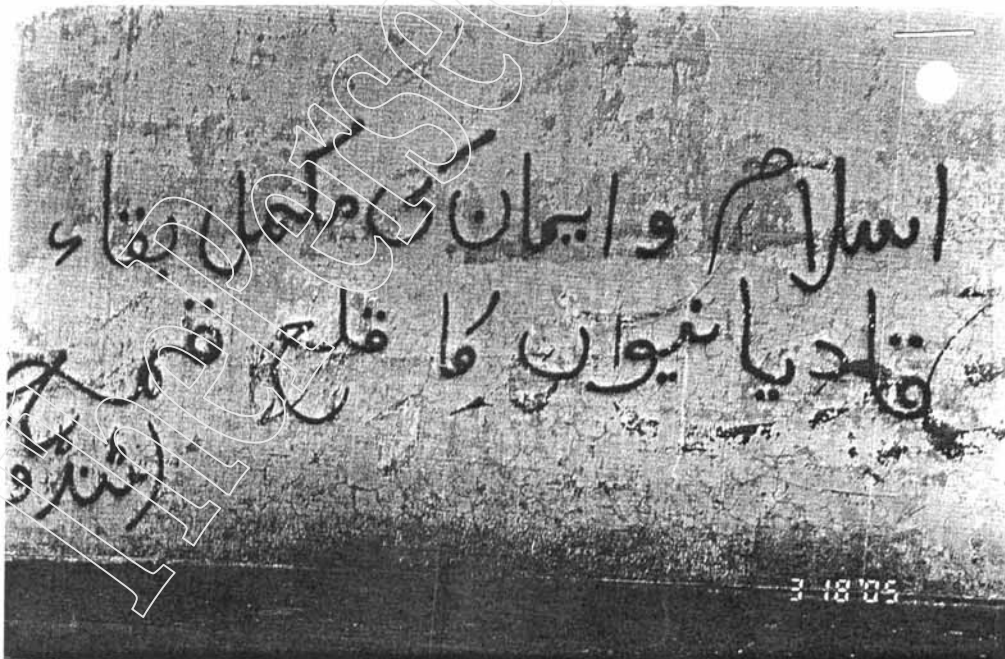 اسلام و ایمان کی مکمل بقاء
قادیانیوں کا قلع قمع
3 18 '05